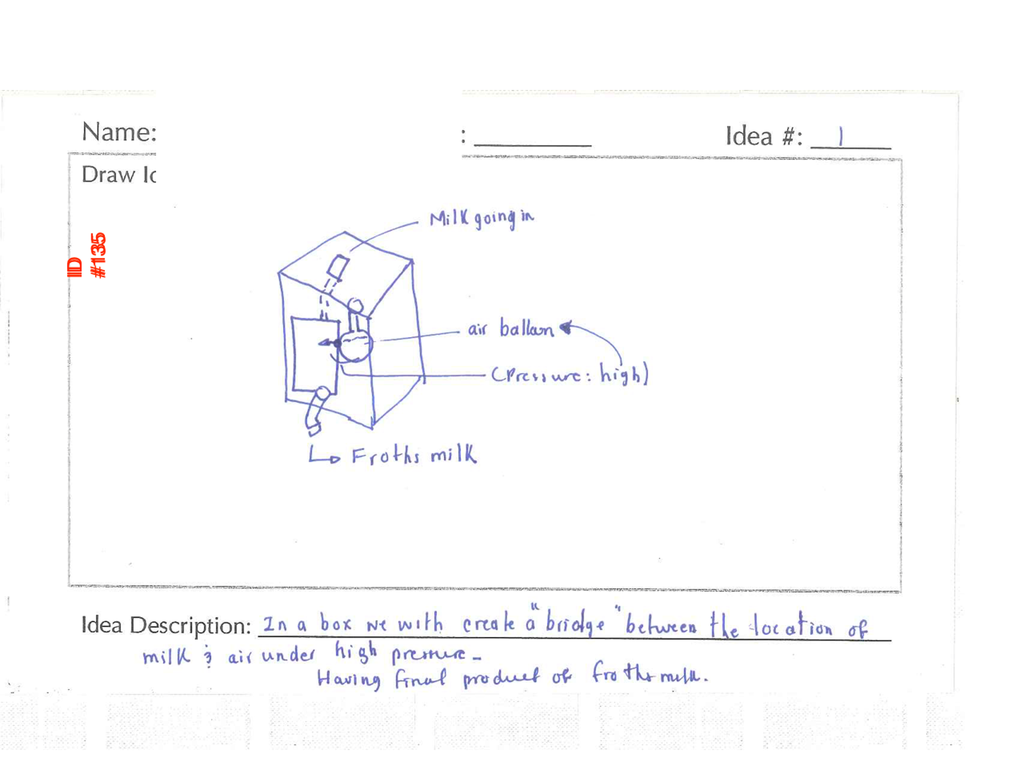 Name: : Idea #: 1
Draw Id
ID #135
Milk going in
air balloon
(Pressure: high)
Froths milk
Idea Description: In a box we with create a "bridge" between the location of
milk & air under high pressure.
Having final product of froths milk.